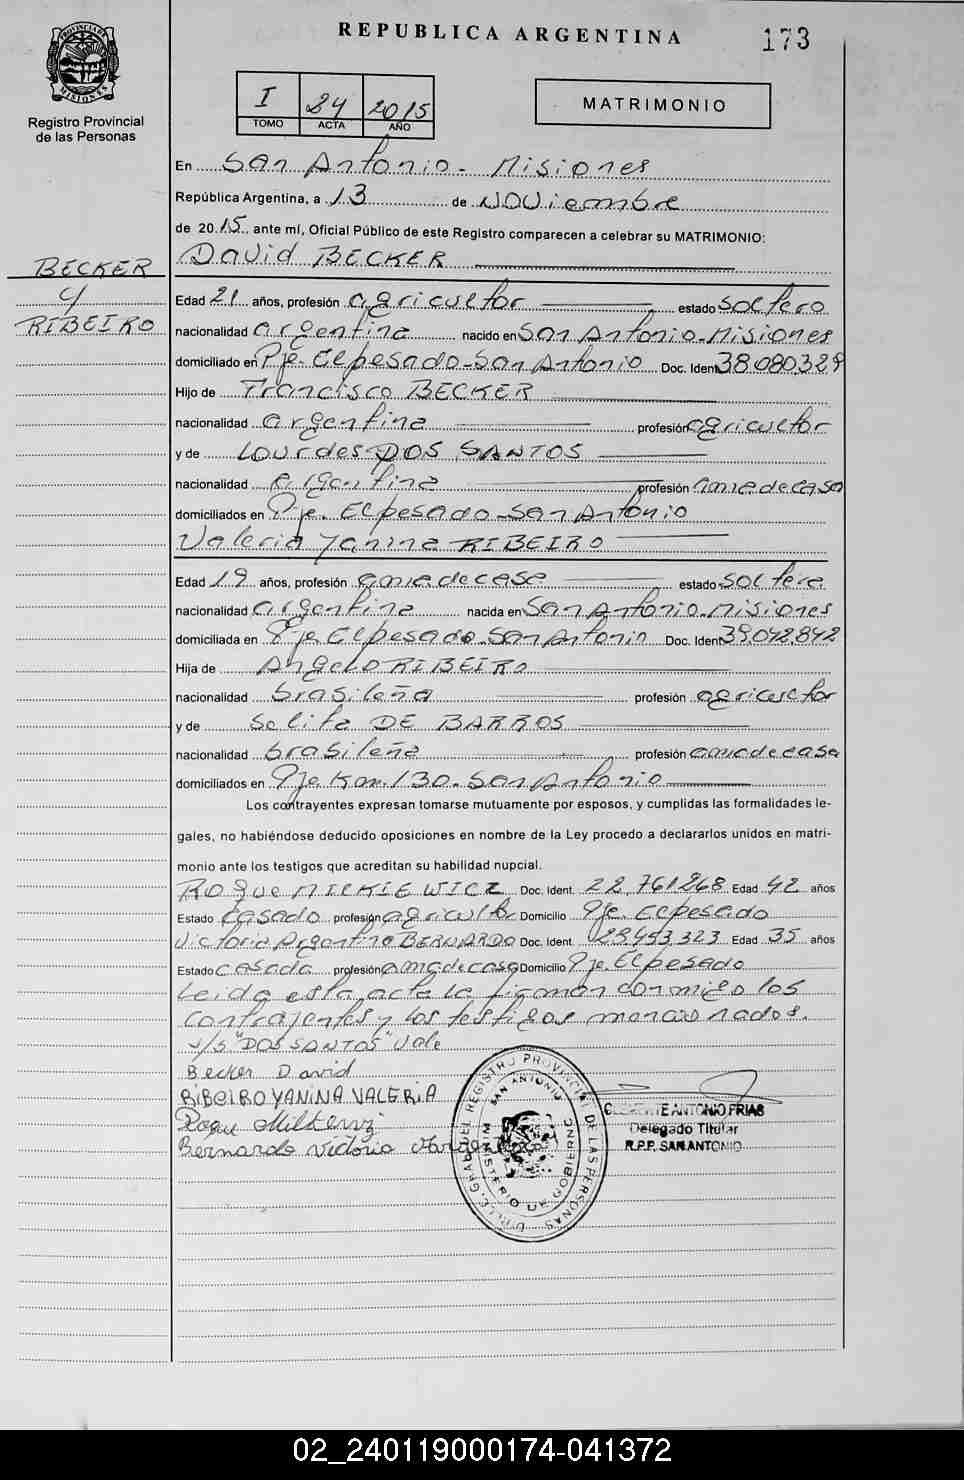 REPUBLICA ARGENTINA
173
PROVINCIA DE MISIONES
Registro Provincial
de las Personas
I 84 2015
TOMO ACTA AÑO
MATRIMONIO
En San Antonio - Misiones
República Argentina, a 13 de Noviembre
de 2015 ante mí, Oficial Público de este Registro comparecen a celebrar su MATRIMONIO:
BECKER
y
RIBEIRO
David BECKER
Edad 21 años, profesión agricultor estado soltero
nacionalidad argentina nacido en San Antonio - Misiones
domiciliado en Pje. El pesado - San Antonio Doc. Ident. 38.080.329
Hijo de Francisco BECKER
nacionalidad argentina profesión agricultor
y de Lourdes DOS SANTOS
nacionalidad argentina profesión ama de casa
domiciliados en Pje. El pesado - San Antonio
Valeria Yanina RIBEIRO
Edad 19 años, profesión ama de casa estado soltera
nacionalidad argentina nacida en San Antonio - Misiones
domiciliada en Pje. El pesado - San Antonio Doc. Ident. 39.042.842
Hija de Angelo RIBEIRO
nacionalidad brasileña profesión agricultor
y de Selita DE BARROS
nacionalidad brasileña profesión ama de casa
domiciliados en Pje. Km. 130 - San Antonio
Los contrayentes expresan tomarse mutuamente por esposos, y cumplidas las formalidades le-
gales, no habiéndose deducido oposiciones en nombre de la Ley procedo a declararlos unidos en matri-
monio ante los testigos que acreditan su habilidad nupcial.
Roque MILKIEWICZ Doc. Ident. 22.761.268 Edad 42 años
Estado casado profesión agricultor Domicilio Pje. El pesado
Victoria Argentina BERNARDO Doc. Ident. 28.453.323 Edad 35 años
Estado casada profesión ama de casa Domicilio Pje. El pesado
Leida esta acta la firman conmigo los
contrayentes y los testigos mencionados.
s/s "DOS SANTOS" Vale
Becker David
RIBEIRO YANINA VALERIA
Roque
Bernardo Victoria
REGISTRO PROVINCIAL DE LAS PERSONAS
SAN ANTONIO
MINISTERIO DE GOBIERNO
CLEMENTE ANTONIO FRIAS
Delegado Titular
R.P.P. SAN ANTONIO
02_240119000174-041372